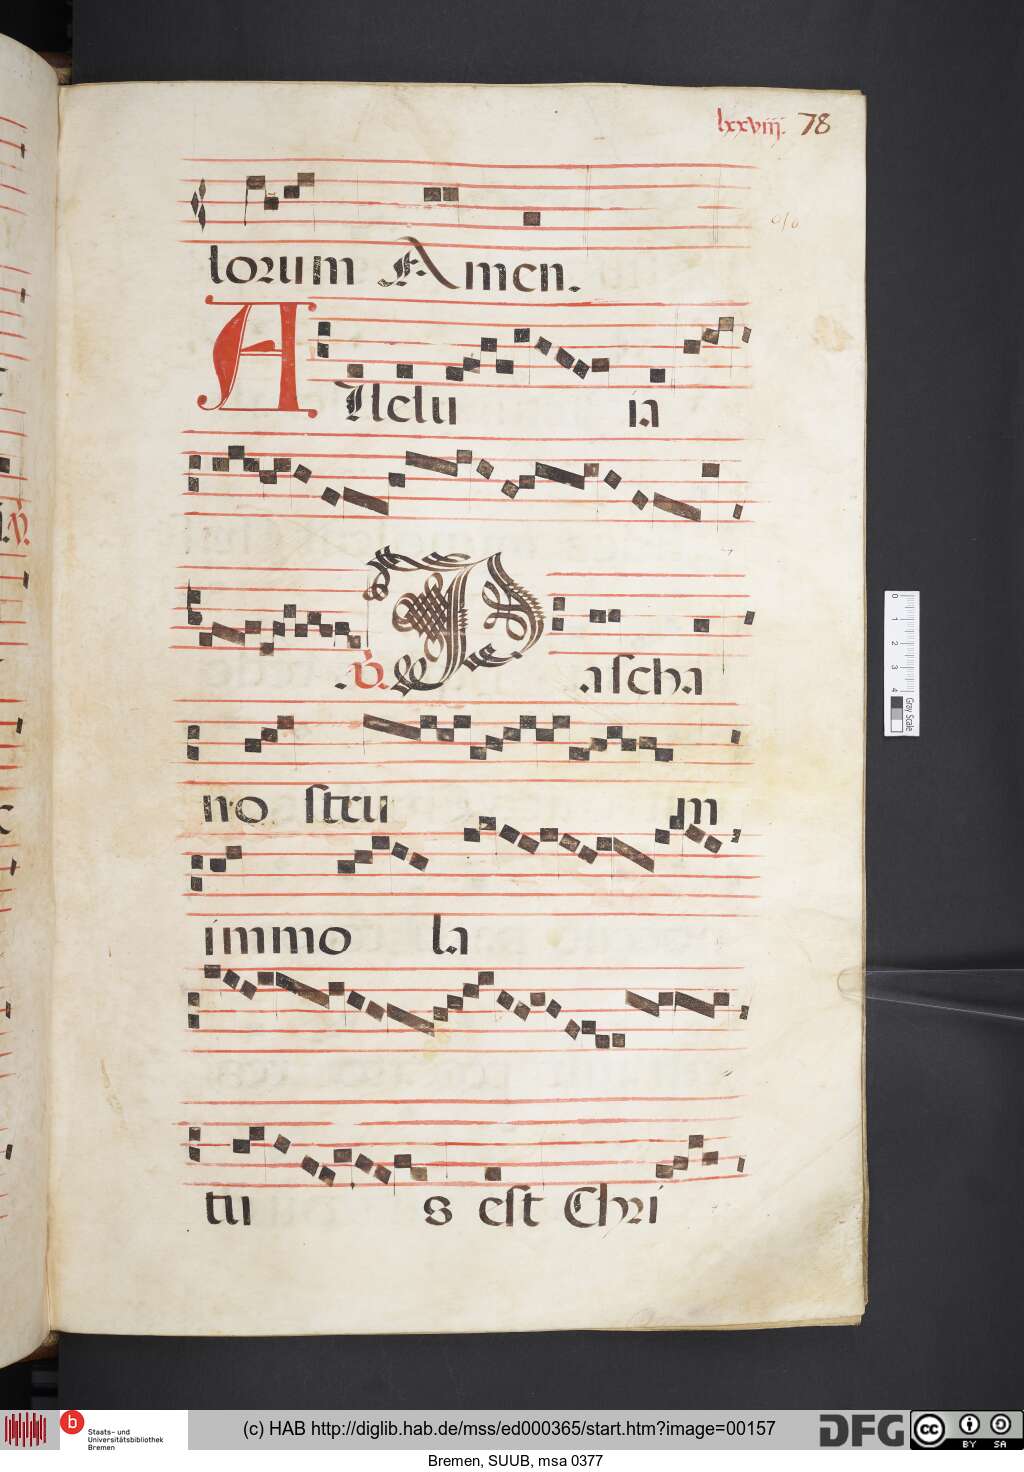 lxxviij. 78
lorum Amen.
Allelu ia
.℣. Pascha
no stru m
immo la
tu s est Chri
0 1 2 3 4
Gray Scale
b Staats- und
Universitätsbibliothek
Bremen
(c) HAB http://diglib.hab.de/mss/ed000365/start.htm?image=00157
DFG
cc BY SA
Bremen, SUUB, msa 0377